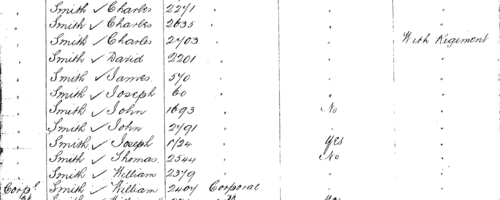 Smith ✓ Charles 2271
Smith ✓ Charles 2635
Smith ✓ Charles 2703 With Regiment
Smith ✓ David 2201
Smith ✓ James 570
Smith ✓ Joseph 60
Smith ✓ John 1693 No
Smith ✓ John 2791
Smith ✓ Joseph 1724 Yes
Smith ✓ Thomas 2544 No
Smith ✓ William 2379
Corpl Smith ✓ William 2407 Corporal